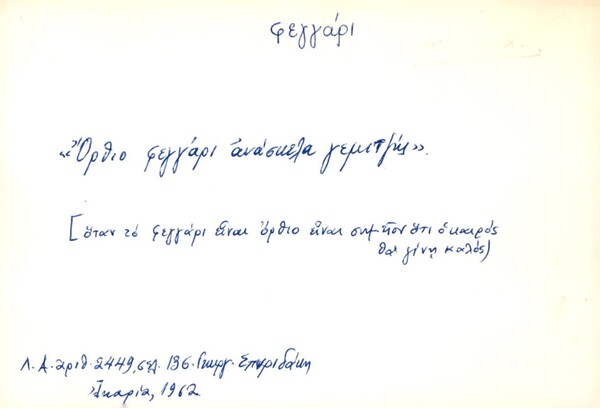 φεγγάρι
«Όρθιο φεγγάρι ἀνάσκελα γεμιτζής».
[ὅταν τό φεγγάρι εἶναι ὄρθιο εἶναι σημεῖον ὅτι ὁ καιρός
θά γίνῃ καλός)
Λ.Α. ἀριθ. 2449, σελ. 136. Γεωργ. Σπυριδάκη
Ἰκαρία, 1962